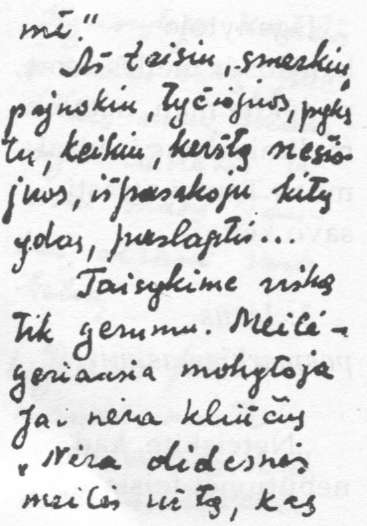 mė."
Aš teisiu, smerkiu,
pajuokiu, tyčiojuos, pyks
tu, keikiu, kerštą nešio-
juos, išpasakoju kitų
ydas, paslaptis...
Taisykime viską
tik gerumu. Meilė -
geriausia mokytoja
Jai nėra kliūčių
„Nėra didesnės
meilės už tą, kas